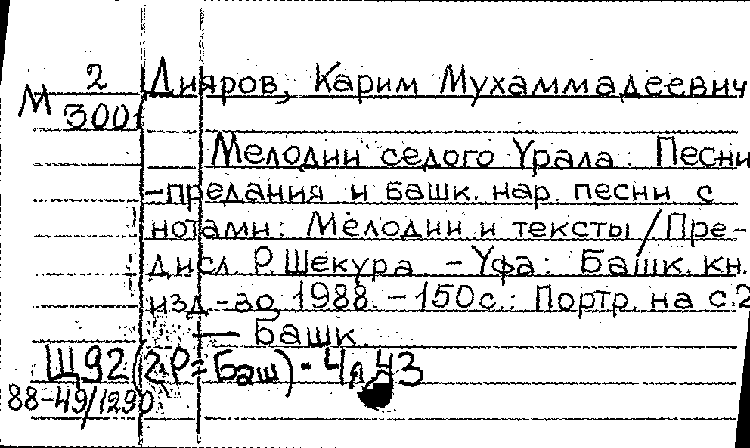 М 2/3001
Дияров, Карим Мухаммадеевич
Мелодии седого Урала: Песни
-предания и башк. нар. песни с
нотами: Мелодии и тексты / Пре-
дисл. Р. Шекура. - Уфа: Башк. кн.
изд-во, 1988. - 150с.: Портр. на с.2
— Башк.
Щ92(2Р=Баш)-4я43
88-49/1290